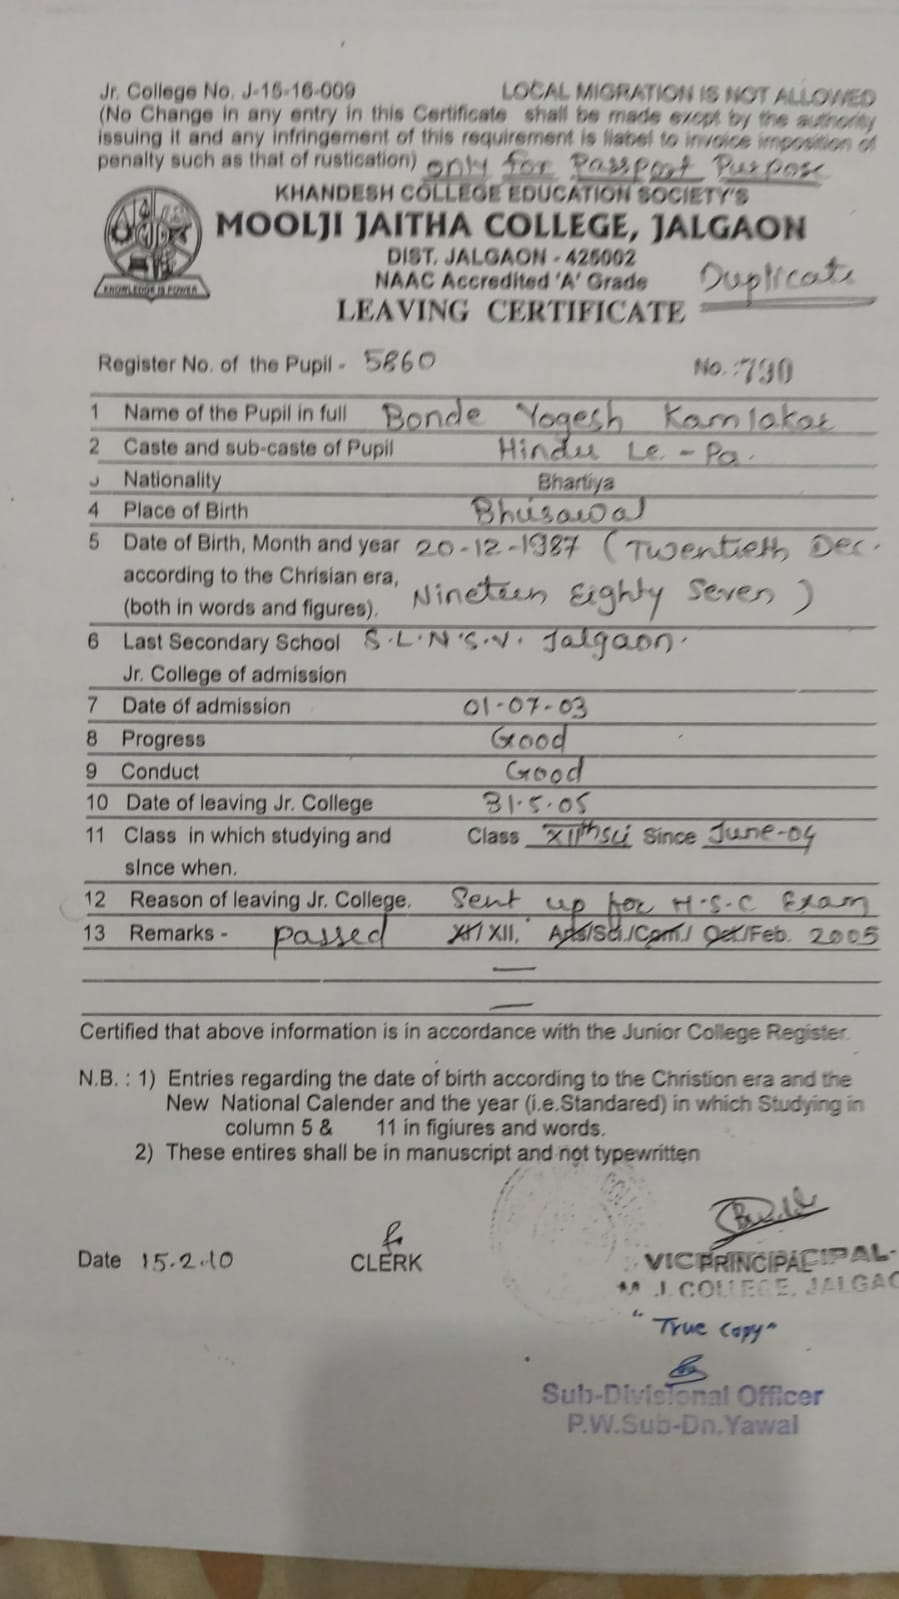 Jr. College No. J-15-16-009 LOCAL MIGRATION IS NOT ALLOWED
(No Change in any entry in this Certificate shall be made excpt by the authority
issuing it and any infringement of this requirement is liabel to invoice imposition of
penalty such as that of rustication) only for Passport Purpose
KHANDESH COLLEGE EDUCATION SOCIETY'S
MOOLJI JAITHA COLLEGE, JALGAON
DIST. JALGAON - 425002
NAAC Accredited 'A' Grade Duplicate
KNOWLEDGE IS POWER
LEAVING CERTIFICATE
Register No. of the Pupil - 5860 No.: 790
1 Name of the Pupil in full Bonde Yogesh Kamlakar
2 Caste and sub-caste of Pupil Hindu Le. - Pa.
3 Nationality Bhartiya
4 Place of Birth Bhusawal
5 Date of Birth, Month and year 20-12-1987 (Twentieth Dec.
according to the Chrisian era,
(both in words and figures). Nineteen Eighty Seven)
6 Last Secondary School S.L.N'S.V. Jalgaon.
Jr. College of admission
7 Date of admission 01-07-03
8 Progress Good
9 Conduct Good
10 Date of leaving Jr. College 31.5.05
11 Class in which studying and Class XIIth Sci Since June-04
sInce when.
12 Reason of leaving Jr. College. Sent up for H.S.C Exam
13 Remarks - passed XI/ XII, Arts/Sci./Com./ Oct./Feb. 2005
Certified that above information is in accordance with the Junior College Register.
N.B. : 1) Entries regarding the date of birth according to the Christion era and the
New National Calender and the year (i.e.Standared) in which Studying in
column 5 & 11 in figiures and words.
2) These entires shall be in manuscript and not typewritten
Date 15.2.10 CLERK VICE PRINCIPAL
M. J. COLLEGE, JALGAO
"True copy"
Sub-Divisional Officer
P.W.Sub-Dn.Yawal